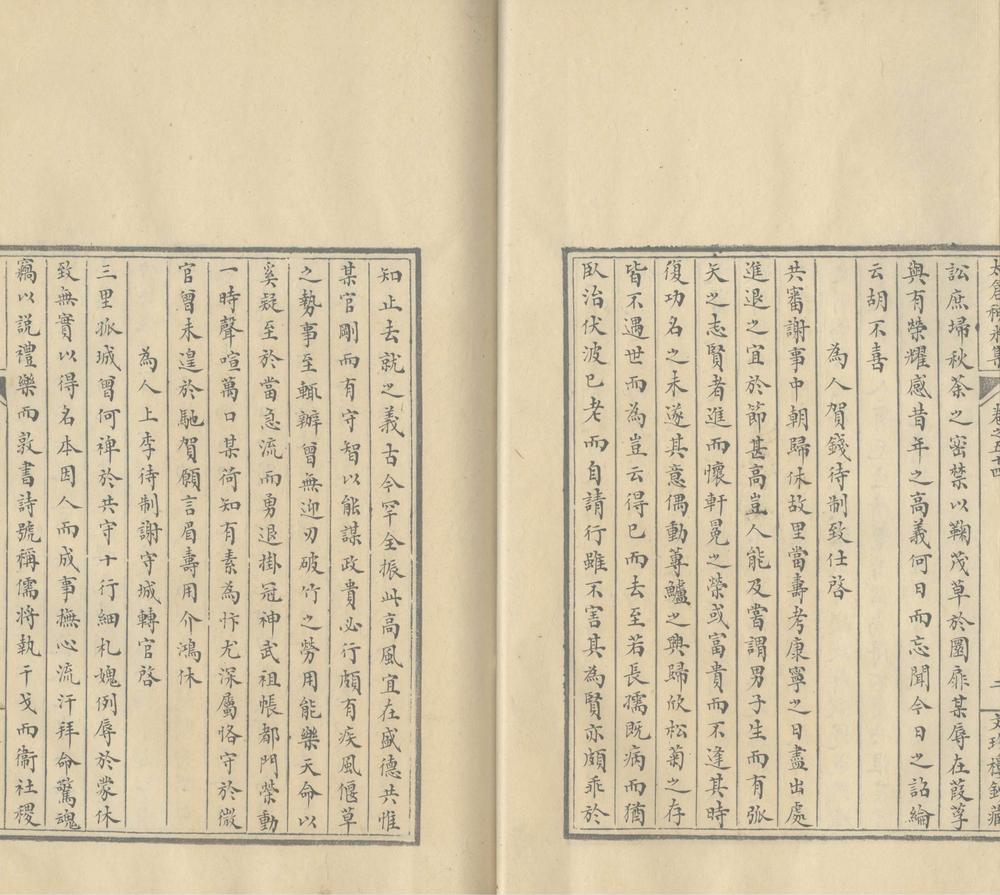 太倉稊米集 卷之五十四 二
訟庶埽秋荼之密禁以鞠茂草於圜扉某辱在葭莩
與有榮耀感昔年之高義何日而忘聞今日之詔綸
云胡不喜
為人賀錢待制致仕啓
共審謝事中朝歸休故里當壽考康寧之日盡出處
進退之宜於節甚高豈人能及嘗謂男子生而有弧
矢之志賢者進而懷軒冕之榮或富貴而不逢其時
復功名之未遂其意偶動蓴鱸之興歸欣松菊之存
皆不遇世而為豈云得已而去至若長孺既病而猶
臥治伏波已老而自請行雖不害其為賢亦頗乖於
知止去就之義古今罕全振此高風宜在盛德共惟
某官剛而有守智以能謀政貴必行頗有疾風偃草
之勢事至輒辦曾無迎刃破竹之勞用能樂天命以
奚疑至於當急流而勇退掛冠神武祖帳都門榮動
一時聲喧萬口某荷知有素為忭尤深屬恪守於微
官曾未遑於馳賀願言眉壽用介鴻休
為人上李待制謝守城轉官啓
三里孤城曾何裨於共守十行細札媿例辱於蒙休
致無實以得名本因人而成事撫心流汗拜命驚魂
竊以說禮樂而敦書詩號稱儒將執干戈而衞社稷